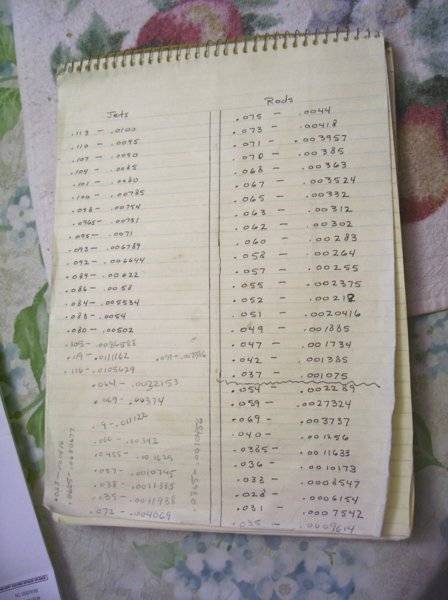 Jets
.113 - .0100
.110 - .0095
.107 - .0090
.104 - .0085
.101 - .0080
.100 - .00785
.098 - .00754
.0965 - .00731
.095 - .0071
.093 - .006789
.092 - .006644
.089 - .00622
.086 - .0058
.084 - .005534
.083 - .0054
.080 - .00502
.105 - .0086583
.119 - .0111162
.116 - .0105629
.069 - .00374
.038 - .0011335
.072 - .004069
Rods
.075 - .0044
.073 - .00418
.071 - .003957
.070 - .00385
.068 - .00363
.067 - .003524
.065 - .00332
.063 - .00312
.062 - .00302
.060 - .00283
.058 - .00264
.057 - .00255
.055 - .002375
.052 - .00212
.051 - .0020416
.049 - .001885
.047 - .001734
.042 - .001385
.037 - .001075
.054 - .002289
.059 - .0027324
.069 - .003737
.040 - .001256
.0385 - .0011635
.036 - .0010173
.033 - .0008547
.028 - .0006154
.031 - .0007542
.035 - .0009614